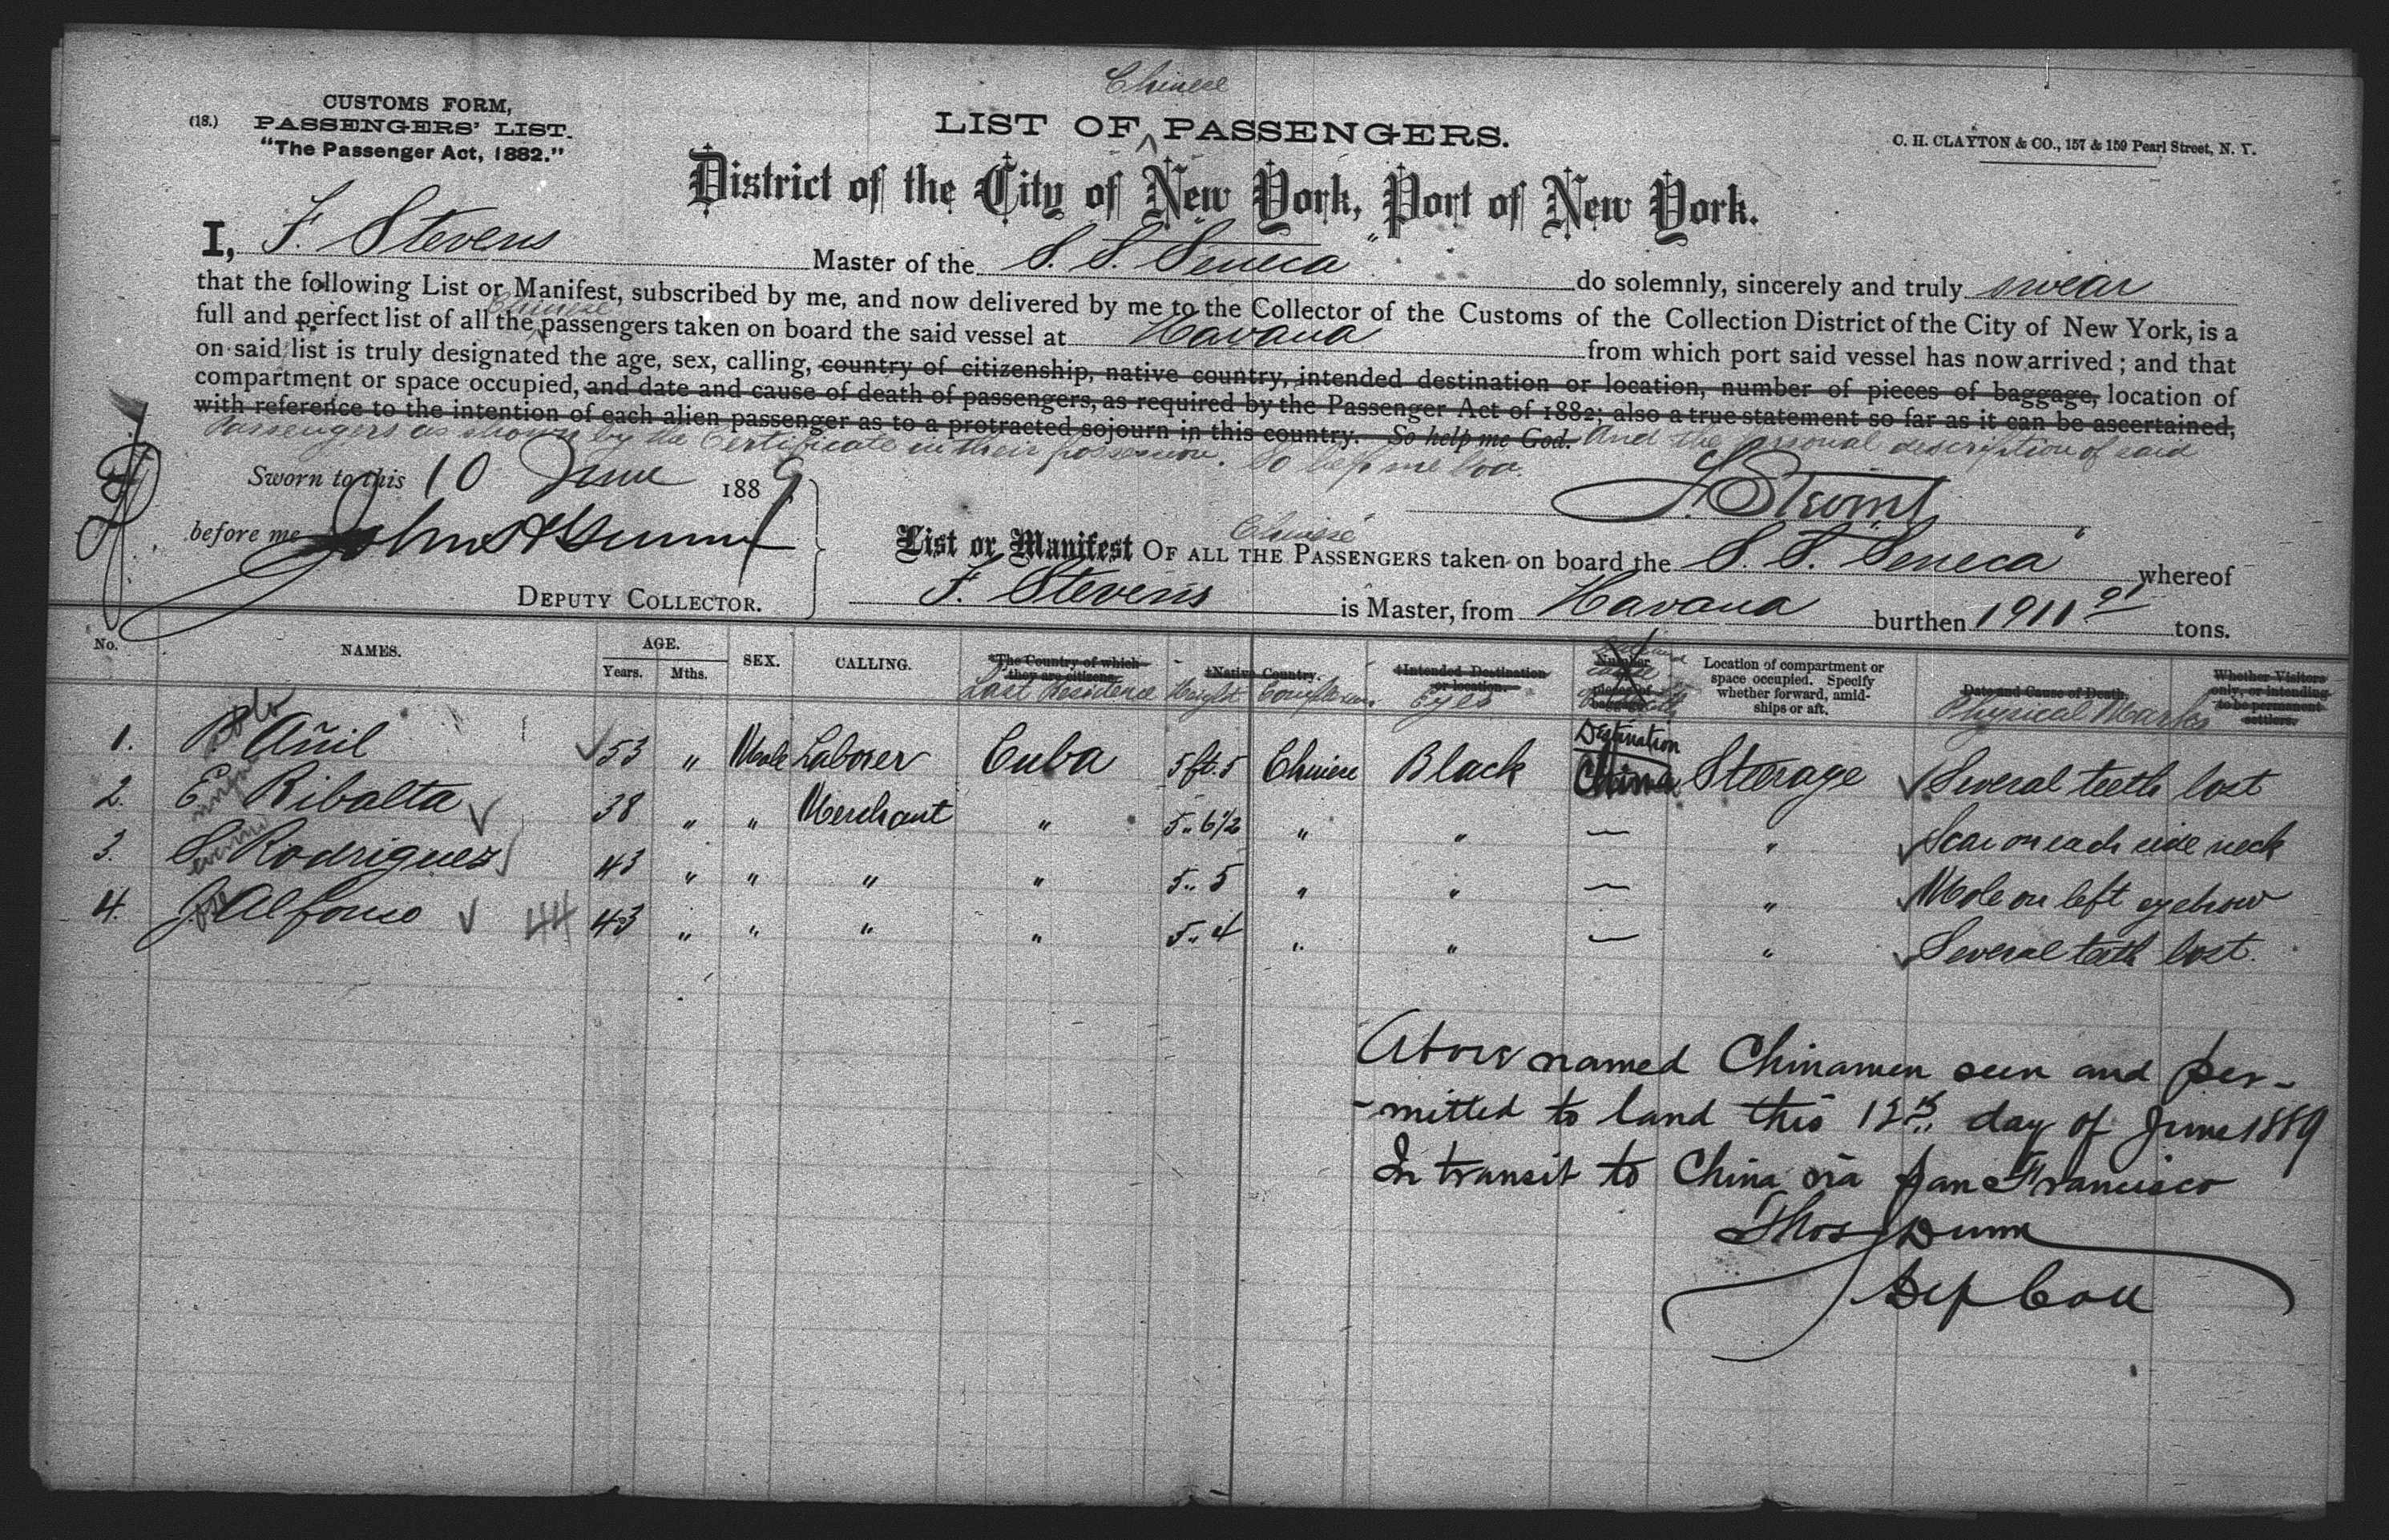 Chinese
CUSTOMS FORM,
(18.) PASSENGERS' LIST.
"The Passenger Act, 1882."
LIST OF ^ PASSENGERS.
C. H. CLAYTON & CO., 157 & 159 Pearl Street, N. Y.
District of the City of New York, Port of New York.
I, F. Stevens Master of the S. S. "Seneca" do solemnly, sincerely and truly swear
that the following List or Manifest, subscribed by me, and now delivered by me to the Collector of the Customs of the Collection District of the City of New York, is a
Chinese
full and perfect list of all the ^ passengers taken on board the said vessel at Havana from which port said vessel has now arrived; and that
on said list is truly designated the age, sex, calling, country of citizenship, native country, intended destination or location, number of pieces of baggage, location of
compartment or space occupied, and date and cause of death of passengers, as required by the Passenger Act of 1882; also a true statement so far as it can be ascertained,
with reference to the intention of each alien passenger as to a protracted sojourn in this country. So help me God. And the personal description of said
Passengers as shown by the Certificate in their possession. So help me God.
Sworn to this 10 June 1889
F. Stevens
before me
DEPUTY COLLECTOR.
Chinese
List or Manifest OF ALL THE PASSENGERS taken on board the S. S. "Seneca" whereof
F. Stevens is Master, from Havana burthen 1911 91 tons.
No. NAMES. AGE. Years. Mths. SEX. CALLING. The Country of which they are citizens. Last Residence Native Country. Height Complexion. Intended Destination or location. Eyes Number pieces of baggage Location of compartment or space occupied. Specify whether forward, amidships or aft. Date and Cause of Death. Physical Marks Whether Visitors only, or intending to be permanent settlers.
Destination
1. P Añil 53 " Male Laborer Cuba 5 ft. 5 Chinese Black China Steerage Several teeth lost
2. E Ribalta 38 " " Merchant " 5 " 6 1/2 " " — " Scar on each side neck
3. S Rodriguez 43 " " " " 5 " 5 " " — " Mole on left eyebrow
4. Jose Alfonso 44 43 " " " " 5 " 4 " " — " Several teeth lost.
Above named Chinamen seen and per-
-mitted to land this 13th day of June 1889
In transit to China via San Francisco
Thos Dunn
Dep Coll